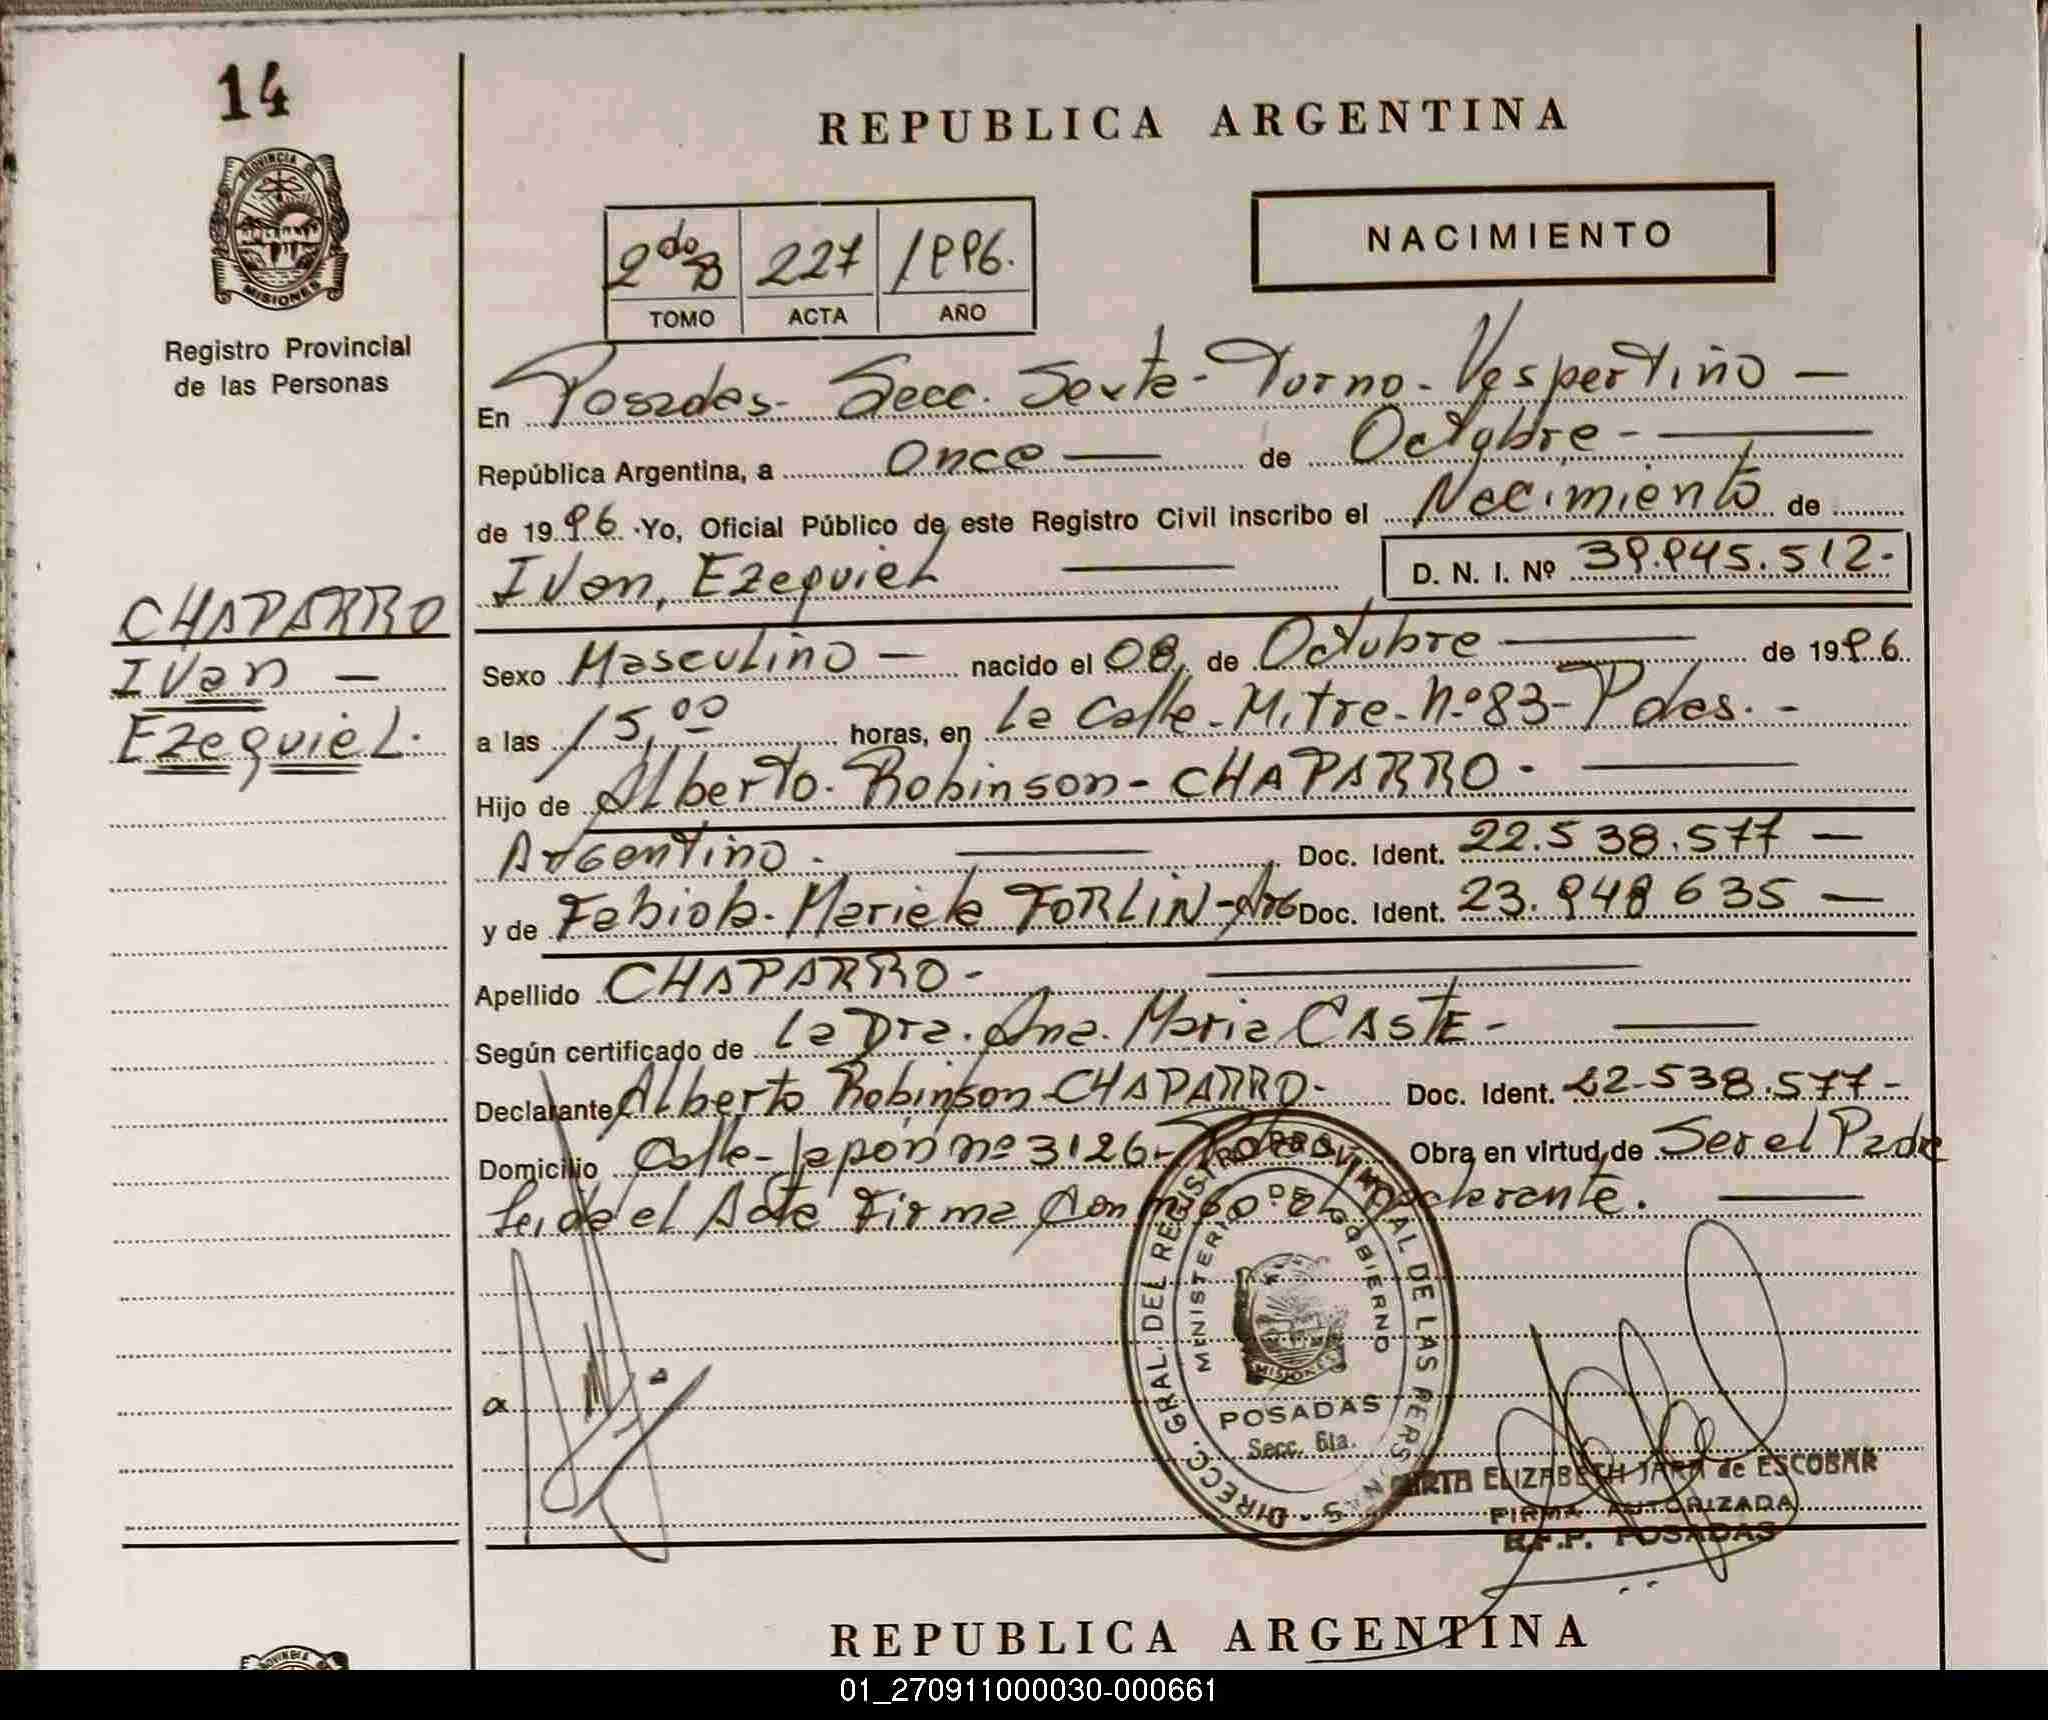 14
REPUBLICA ARGENTINA
PROVINCIA DE
MISIONES
Registro Provincial
de las Personas
2do B 227 1996.
TOMO ACTA AÑO
NACIMIENTO
En Posadas - Secc. Sexta - Turno - Vespertino —
República Argentina, a Once — de Octubre - —
de 1996 Yo, Oficial Público de este Registro Civil inscribo el Nacimiento de
Ivan, Ezequiel — D. N. I. Nº 39.945.512-
CHAPARRO
Ivan —
Ezequiel.
Sexo Masculino — nacido el 08, de Octubre — de 1996.
a las 15,00 horas, en la Calle - Mitre - Nº 83 - Pdas. -
Hijo de Alberto - Robinson - CHAPARRO - —
Argentino - — Doc. Ident. 22.538.577 —
y de Fabiola - Mariela FORLIN - Arg Doc. Ident. 23.948 635 —
Apellido CHAPARRO - —
Según certificado de la Dra. Ana. Maria CASTE - —
Declarante Alberto Robinson - CHAPARRO - Doc. Ident. 22-538.577-
Domicilio Calle - Japón nº 3126 - Obra en virtud de Ser el Padre
Leida el Acta Firma Conmigo el Declarante. —
DIRECC. GRAL. DEL REGISTRO PROVINCIAL DE LAS PERSONAS
MINISTERIO DE GOBIERNO
MISIONES
POSADAS
Secc. 6ta.
ELIZABETH JARA de ESCOBAR
FIRMA AUTORIZADA
R.P.P. POSADAS
REPUBLICA ARGENTINA
01_270911000030-000661